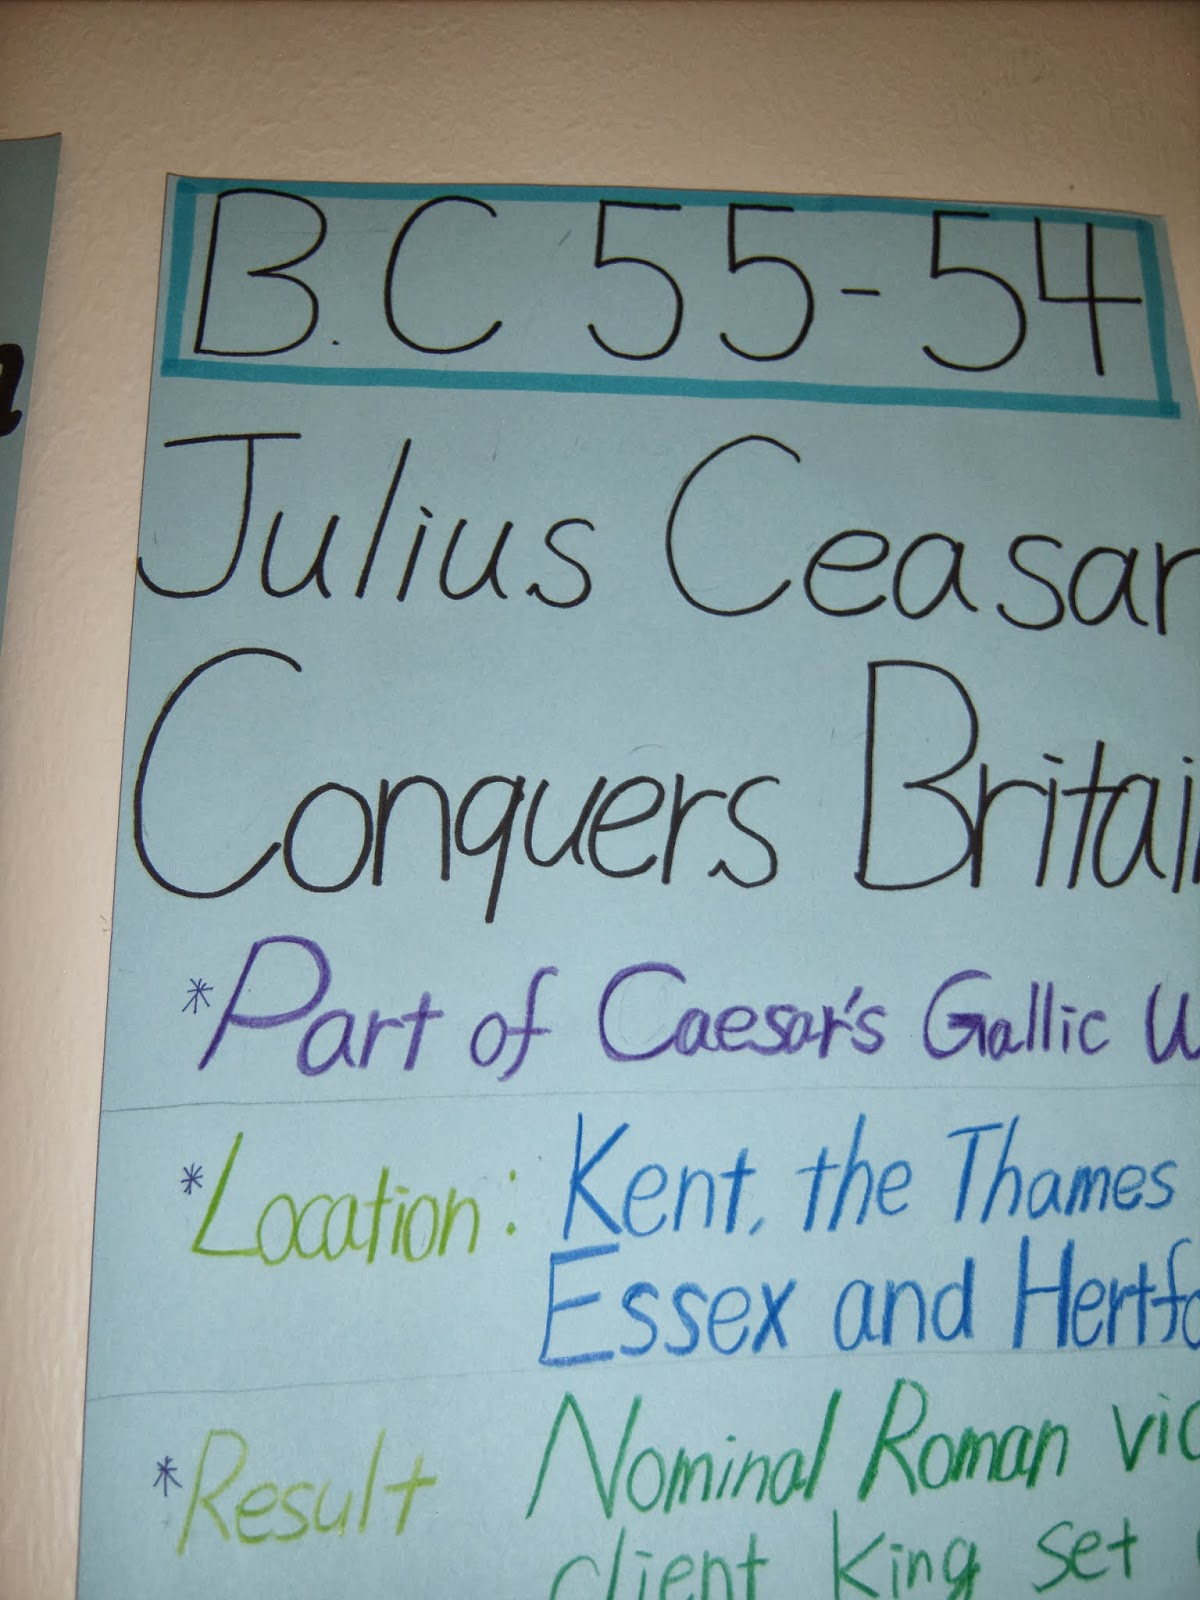 B.C 55-54
Julius Ceasar
Conquers Britai
*Part of Caesar's Gallic W
*Location: Kent, the Thames
Essex and Hertfo
*Result Nominal Roman vic
client King set